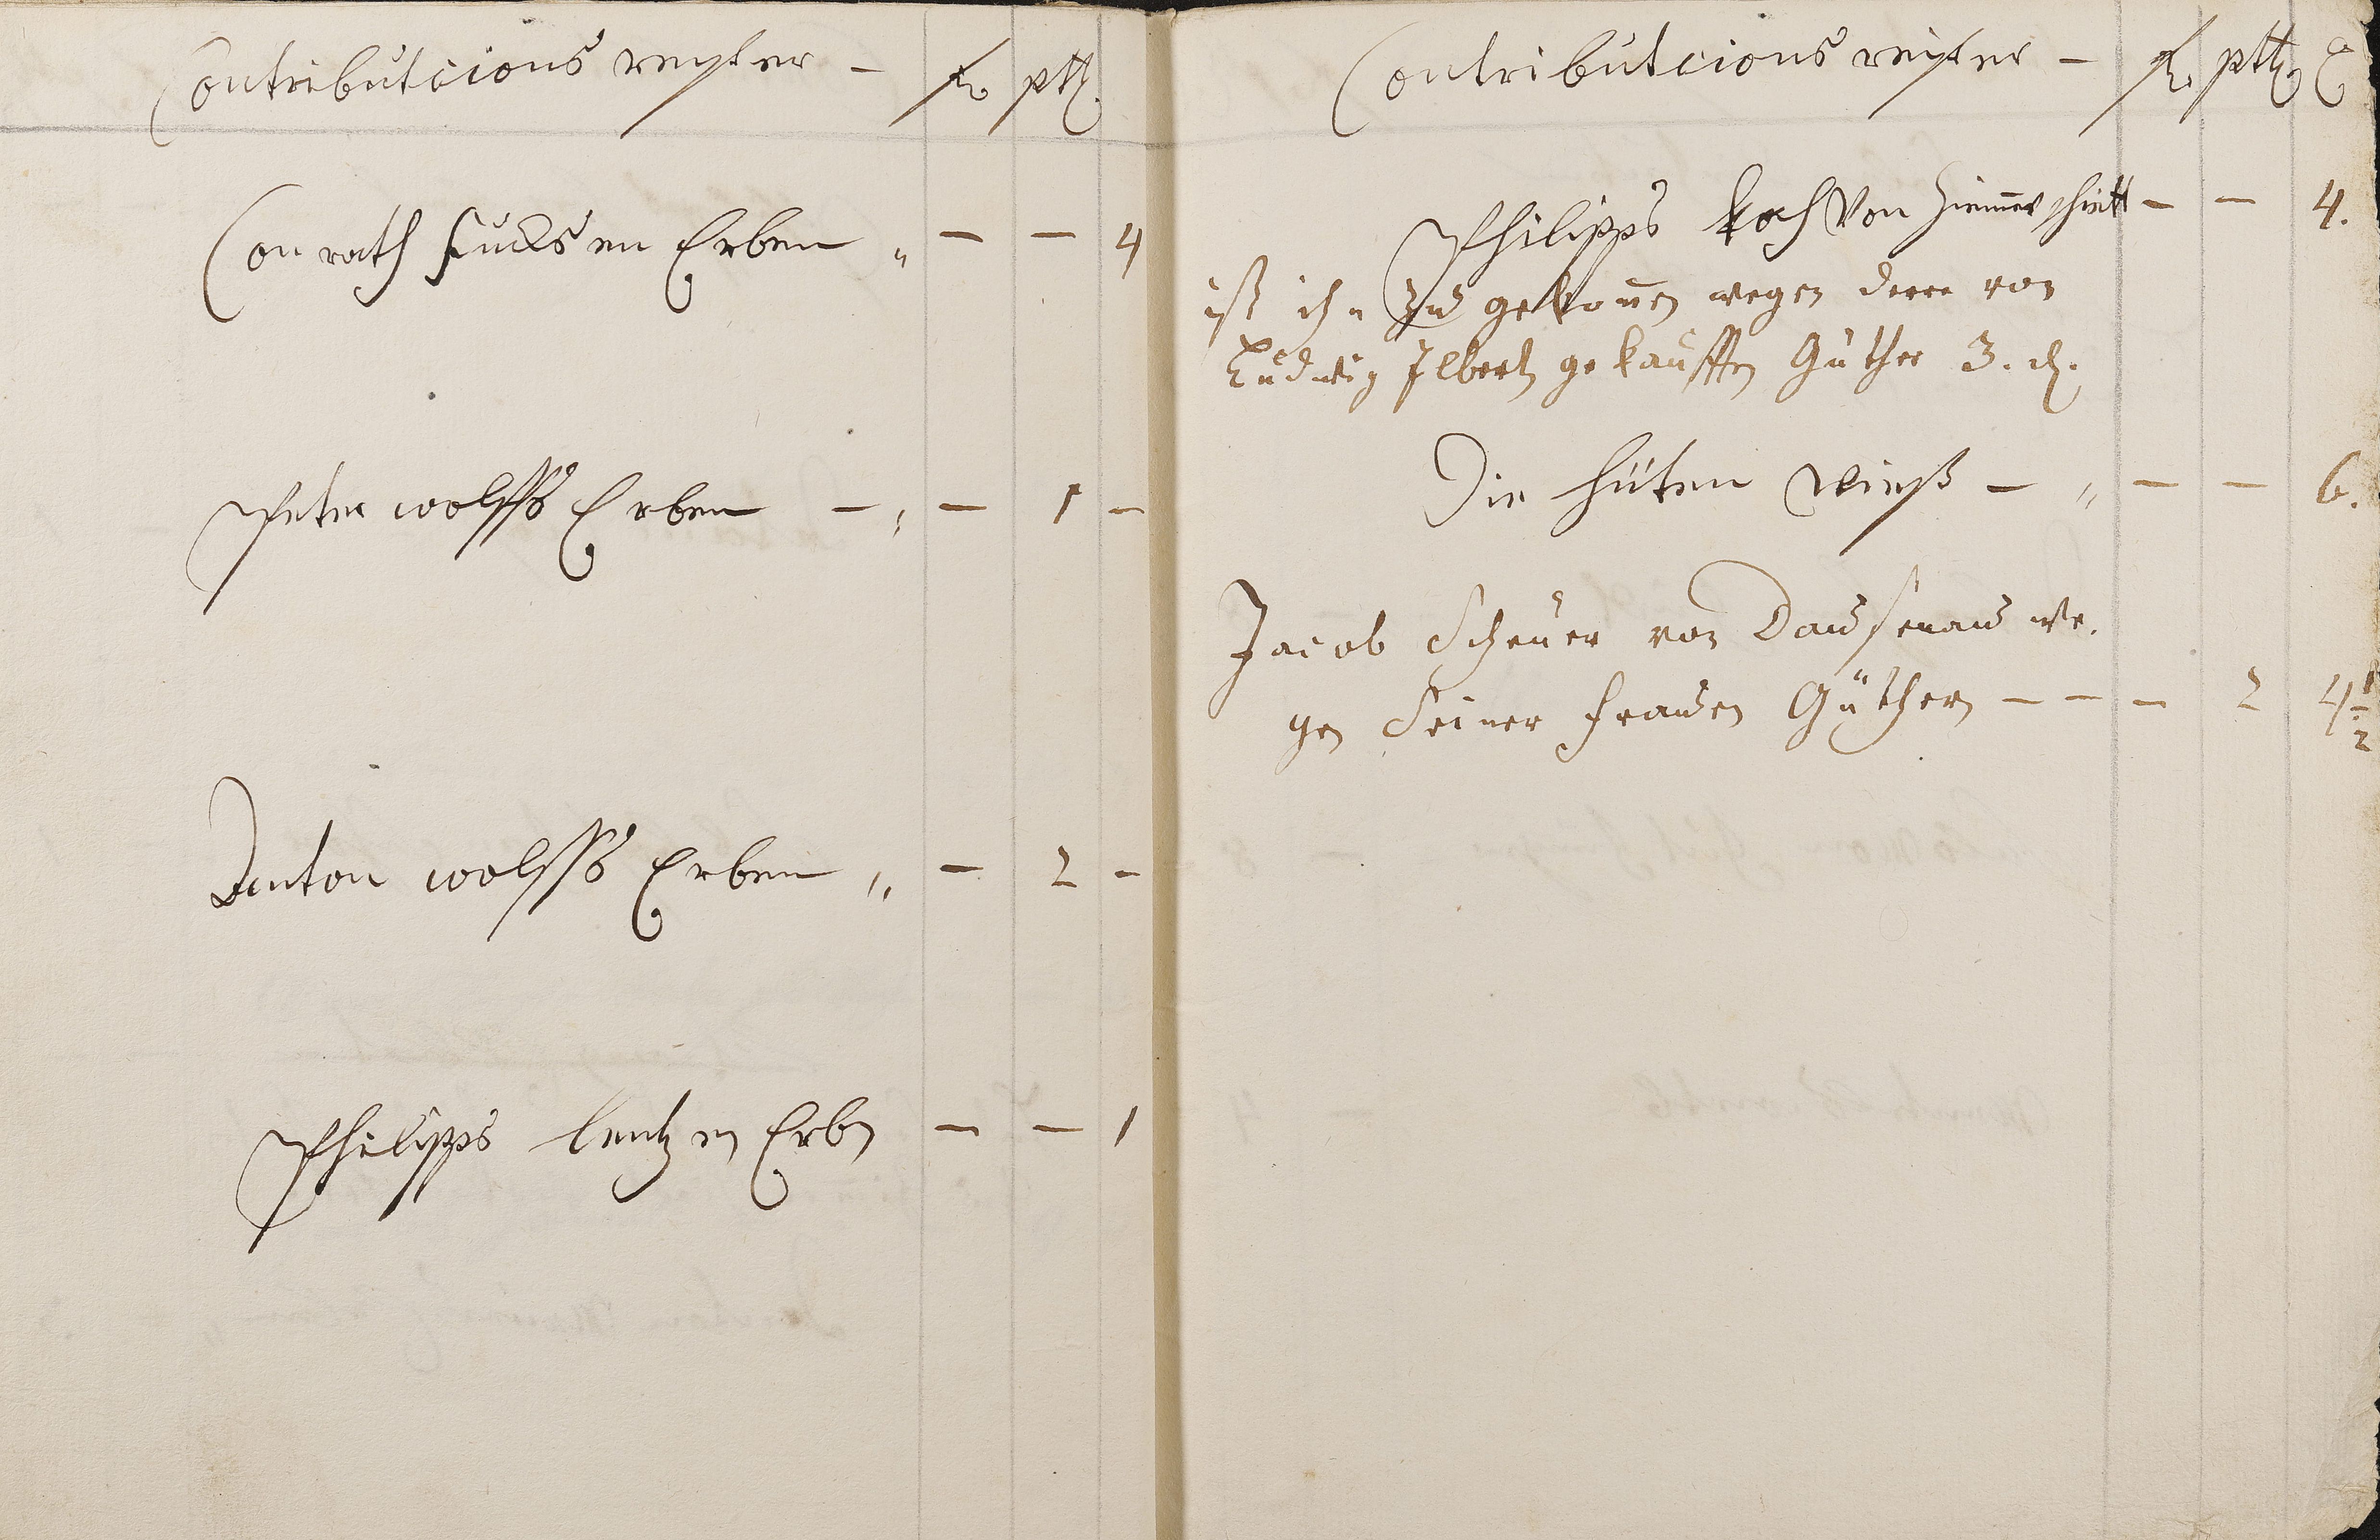 Contributcions regster – fl. ptz.
Conrath fucksen Erben „ – – 4
Peter wolffs Erben – „ – 1 –
Anton wolffs Erben „ – 2 –
Philipps lentzen Erben – – 1
Contributcions regster – fl. ptz. d
Philipps Koch Von Himmerschiett – – 4.
ist ihn zu gekomen wegen dere von
Ludwig Ilbert gekaufften Güther 3. d.
Die hüten wieß – „ – – 6.
Jacob Scheuer von Daussenau we.
gen Seiner frauen Güthern – – – 2 4½